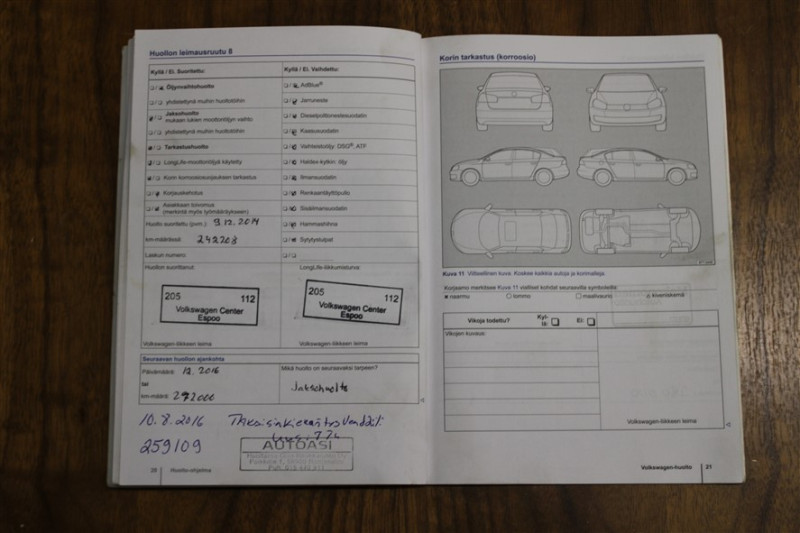 Huollon leimausruutu 8
Kyllä / Ei, Suoritettu:
Öljynvaihtohuolto
yhdistettynä muihin huoltotöihin
Jaksohuolto
mukaan lukien moottoriöljyn vaihto
yhdistettynä muihin huoltotöihin
Tarkastushuolto
LongLife-moottoriöljyä käytetty
Korin korroosiosuojauksen tarkastus
Korjauskehotus
Asiakkaan toivomus
(merkintä myös työmääräykseen)
Huolto suoritettu (pvm.) 9.12.2014
km-määrässä: 242203
Laskun numero:
Huollon suorittanut:
205 112
Volkswagen Center
Espoo
Volkswagen-liikkeen leima
Kyllä / Ei, Vaihdettu:
AdBlue®
Jarruneste
Dieselpolttonestesuodatin
Kaasusuodatin
Vaihteistoöljy: DSG®, ATF
Haldex-kytkin: öljy
Ilmansuodatin
Renkaantäyttöpullo
Sisäilmansuodatin
Hammashihna
Sytytystulpat
LongLife-liikkumisturva:
205 112
Volkswagen Center
Espoo
Volkswagen-liikkeen leima
Seuraavan huollon ajankohta
Päivämäärä: 12.2016
tai
km-määrä: 272000
Mikä huolto on seuraavaksi tarpeen?
Jaksohuolto
10.8.2016
259109
AUTOASI
20 Huolto-ohjelma
Korin tarkastus (korroosio)
Kuva 11 Viitteellinen kuva: Koskee kaikkia autoja ja korimalleja.
Korjaamo merkitsee Kuva 11 vialliset kohdat seuraavilla symboleilla:
naarmu lommo maalivaurio kiveniskemä
Vikoja todettu? Kyl-
lä: Ei:
Vikojen korjaus:
Volkswagen-liikkeen leima
Volkswagen-huolto 21